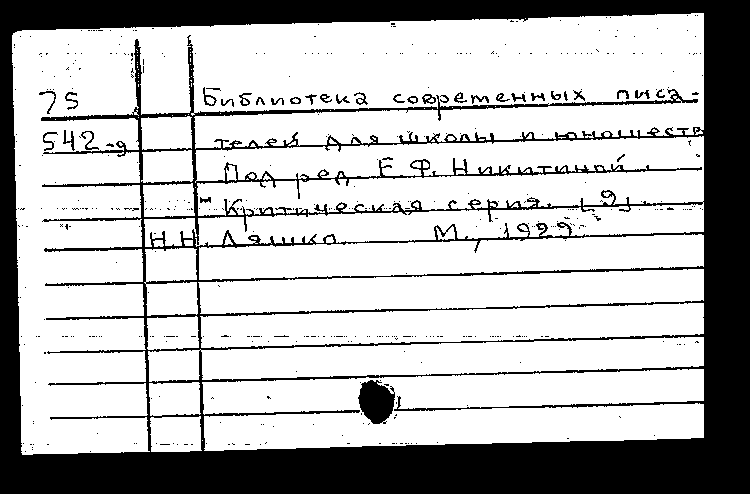 75 Библиотека современных писа-
542-д телей для школы и юношеств
Под ред. Е.Ф. Никитиной.
Критическая серия. [9].
Н.Н. Ляшко. М., 1929